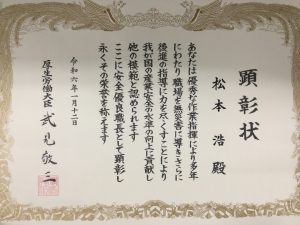 顕彰状
松本 浩 殿
あなたは優秀な作業指揮により多年
にわたり職場を無災害に導きさらに
後進の指導に力を尽くすことにより
我が国の産業安全の水準の向上に貢献し
他の模範と認められます
ここに安全優良職長として顕彰し
永くその栄誉を称えます
令和六年一月十二日
厚生労働大臣 武見敬三